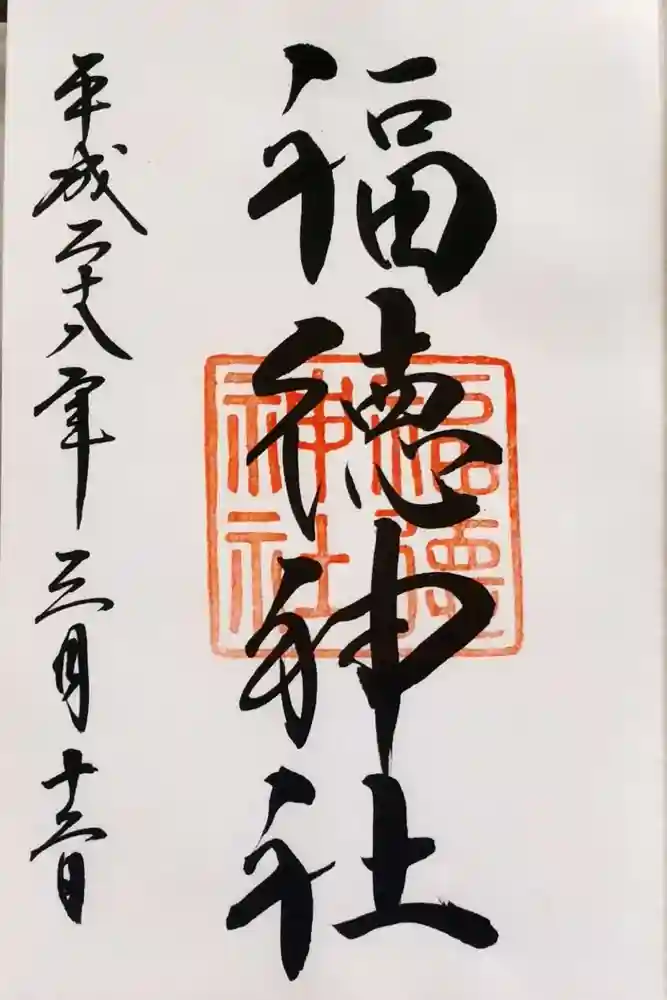 福徳神社
平成二十八年三月十二日
福徳
神社